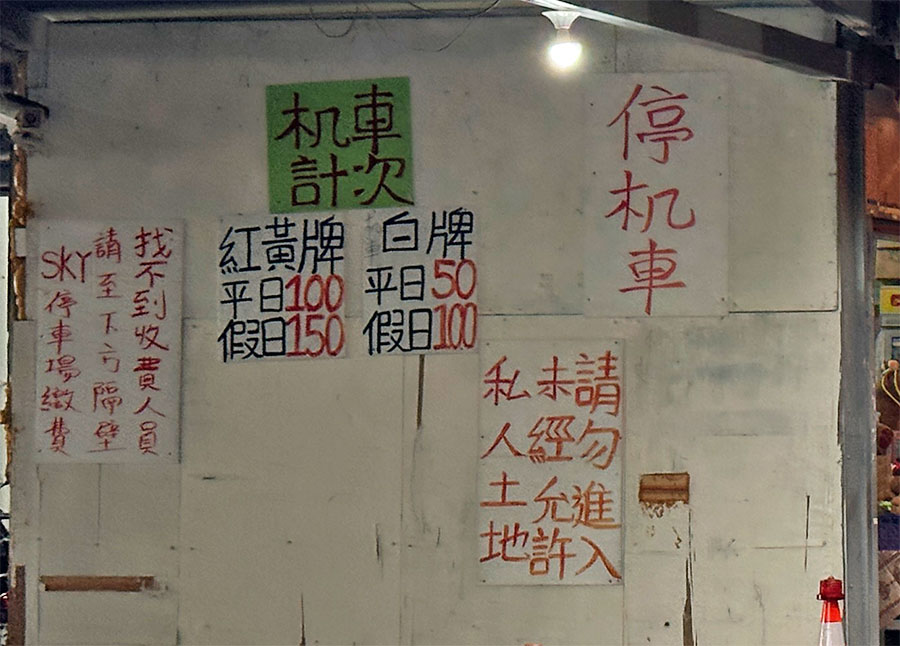 机車
計次
停机車
紅黃牌
平日100
假日150
白牌
平日50
假日100
找不到收費人員
請至下方隔壁
SKY停車場繳費
私人土地
未經允許
請勿進入